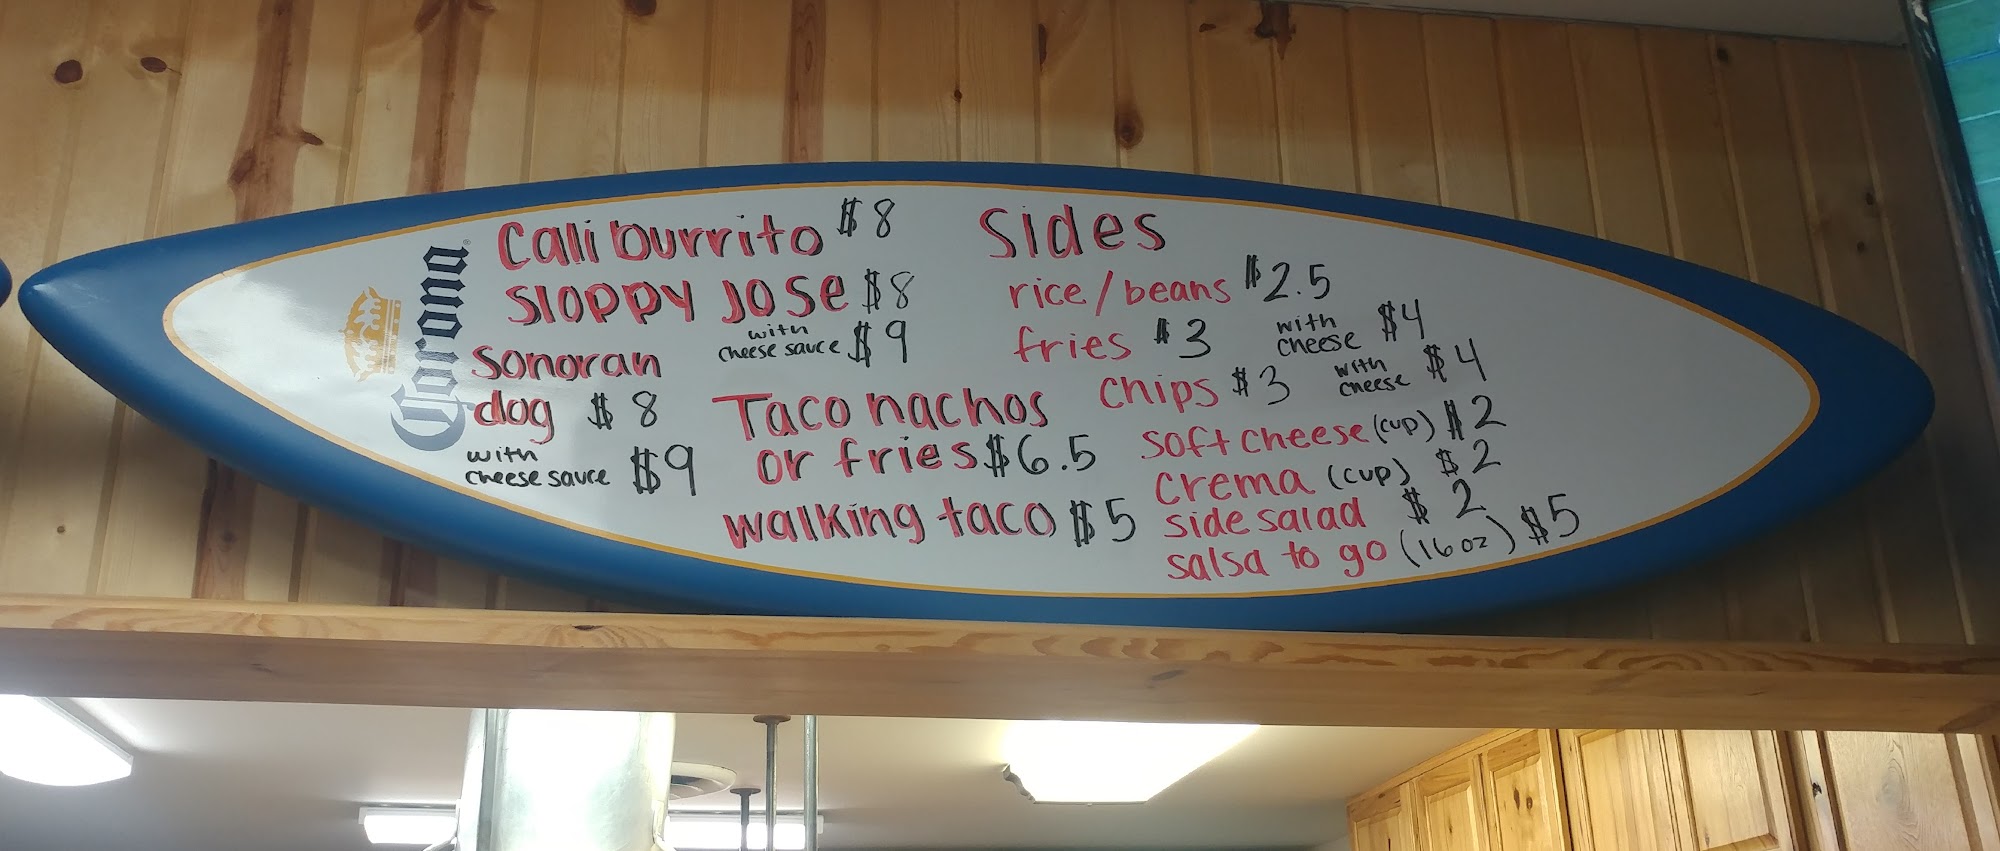 Corona®
Cali burrito $8
Sloppy Jose $8
with
cheese sauce $9
Sonoran
dog $8
with
cheese sauce $9
Taco nachos
or fries $6.5
walking taco $5
Sides
rice/beans $2.5
fries $3 with cheese $4
chips $3 with cheese $4
soft cheese (cup) $2
crema (cup) $2
side salad $2
salsa to go (16oz) $5